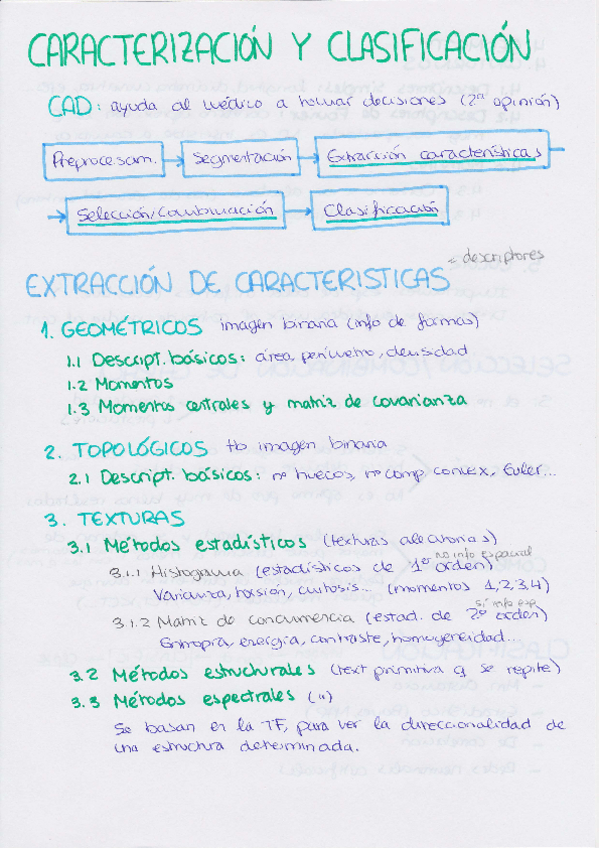 CARACTERIZACIÓN Y CLASIFICACIÓN
CAD: ayuda al médico a tomar decisiones (2ª opinión)
Preprocesam. → Segmentación → Extracción características
→ Selección/combinación → Clasificación
= descriptores
EXTRACCIÓN DE CARACTERISTICAS
1. GEOMÉTRICOS imagen binaria (info de formas)
1.1 Descript. básicos: área, perímetro, densidad
1.2 Momentos
1.3 Momentos centrales y matriz de covarianza
2. TOPOLÓGICOS tb imagen binaria
2.1 Descript. básicos: nº huecos, nº comp. conex, Euler...
3. TEXTURAS
3.1 Métodos estadísticos (texturas aleatorias)
no info espacial
3.1.1 Histograma (estadísticos de 1er orden)
Varianza, torsión, curtosis... (momentos 1,2,3,4)
sí info esp.
3.1.2 Matriz de concurrencia (estad. de 2º orden)
Entropía, energía, contraste, homogeneidad...
3.2 Métodos estructurales (text primitiva q se repite)
3.3 Métodos espectrales (")
Se basan en la TF, para ver la direccionalidad de
una estructura determinada.